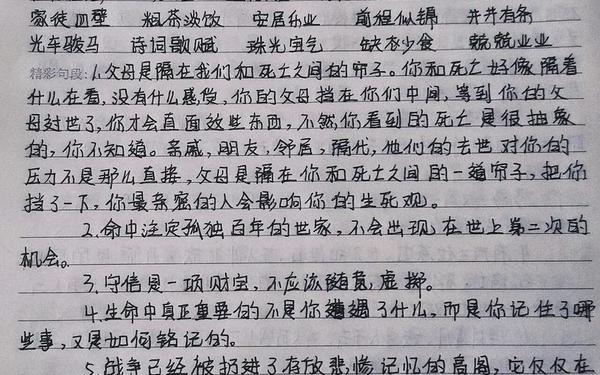 家徒四壁 粗茶淡饭 安居乐业 前程似锦 井井有条
光车骏马 诗词歌赋 珠光宝气 缺衣少食 兢兢业业
精彩句段：1.父母是隔在我们和死亡之间的帘子。你和死亡好像隔着
什么在看，没有什么感受，你的父母挡在你们中间，等到你的父
母过世了，你才会直面这些东西，不然你看到的死亡是很抽象
的，你不知道。亲戚，朋友，邻居，隔代，他们的去世对你的
压力不是那么直接，父母是隔在你和死亡之间的一道帘子，把你
挡了一下，你最亲密的人会影响你的生死观。
2.命中注定孤独百年的世家，不会出现在世上第二次的
机会。
3.守信是一项财宝，不应该随意虚掷。
4.生命中真正重要的不是你遭遇了什么，而是你记住了哪
些事，又是如何铭记的。
5.战争已经被扔进了存放悲惨记忆的高阁，它仅仅在